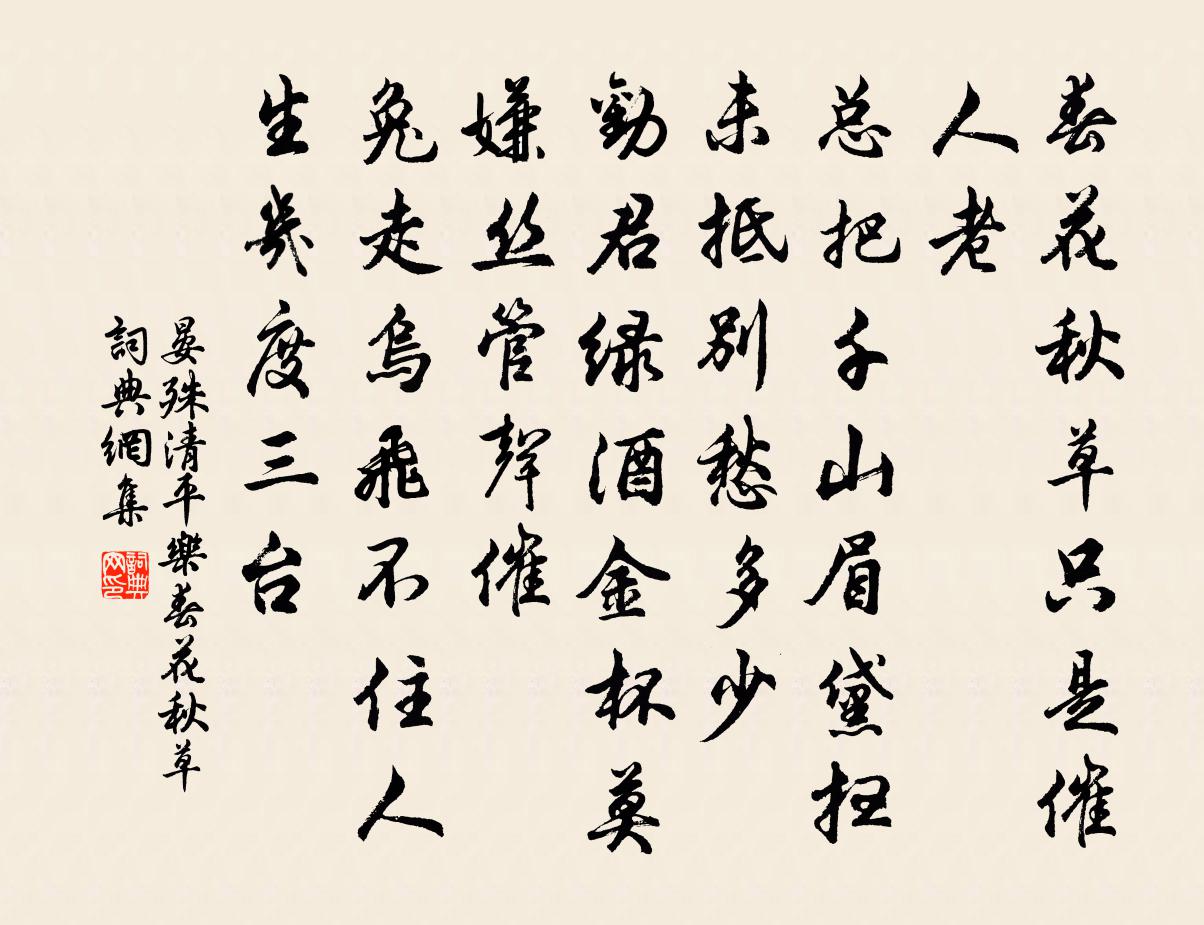 春花秋草只是催
人老
总把千山眉黛扫
未抵别愁多少
勸君绿酒金杯莫
嫌丝管聲催
兔走烏飛不住人
生幾度三台
晏殊清平樂春花秋草
詞典網集
詞典网印